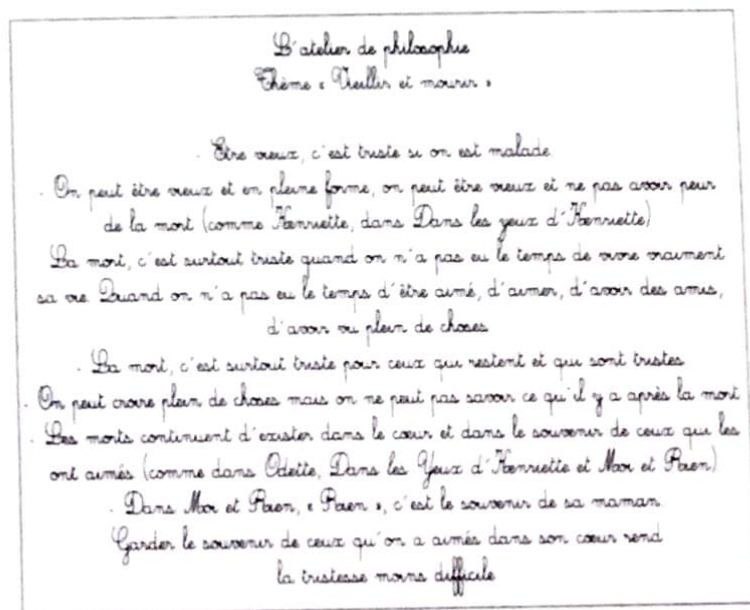 L'atelier de philosophie
Thème « Vieillir et mourir »
- Etre vieux, c'est triste si on est malade.
- On peut être vieux et en pleine forme, on peut être vieux et ne pas avoir peur
de la mort (comme Henriette, dans Dans les yeux d'Henriette)
La mort, c'est surtout triste quand on n'a pas eu le temps de vivre vraiment
sa vie. Quand on n'a pas eu le temps d'être aimé, d'aimer, d'avoir des amis,
d'avoir vu plein de choses.
- La mort, c'est surtout triste pour ceux qui restent et qui sont tristes.
- On peut croire plein de choses mais on ne peut pas savoir ce qu'il y a après la mort
- Les morts continuent d'exister dans le cœur et dans le souvenir de ceux qui les
ont aimés (comme dans Odette, Dans les Yeux d'Henriette et Moi et Rien)
- Dans Moi et Rien, « Rien », c'est le souvenir de sa maman.
Garder le souvenir de ceux qu'on a aimés dans son cœur rend
la tristesse moins difficile